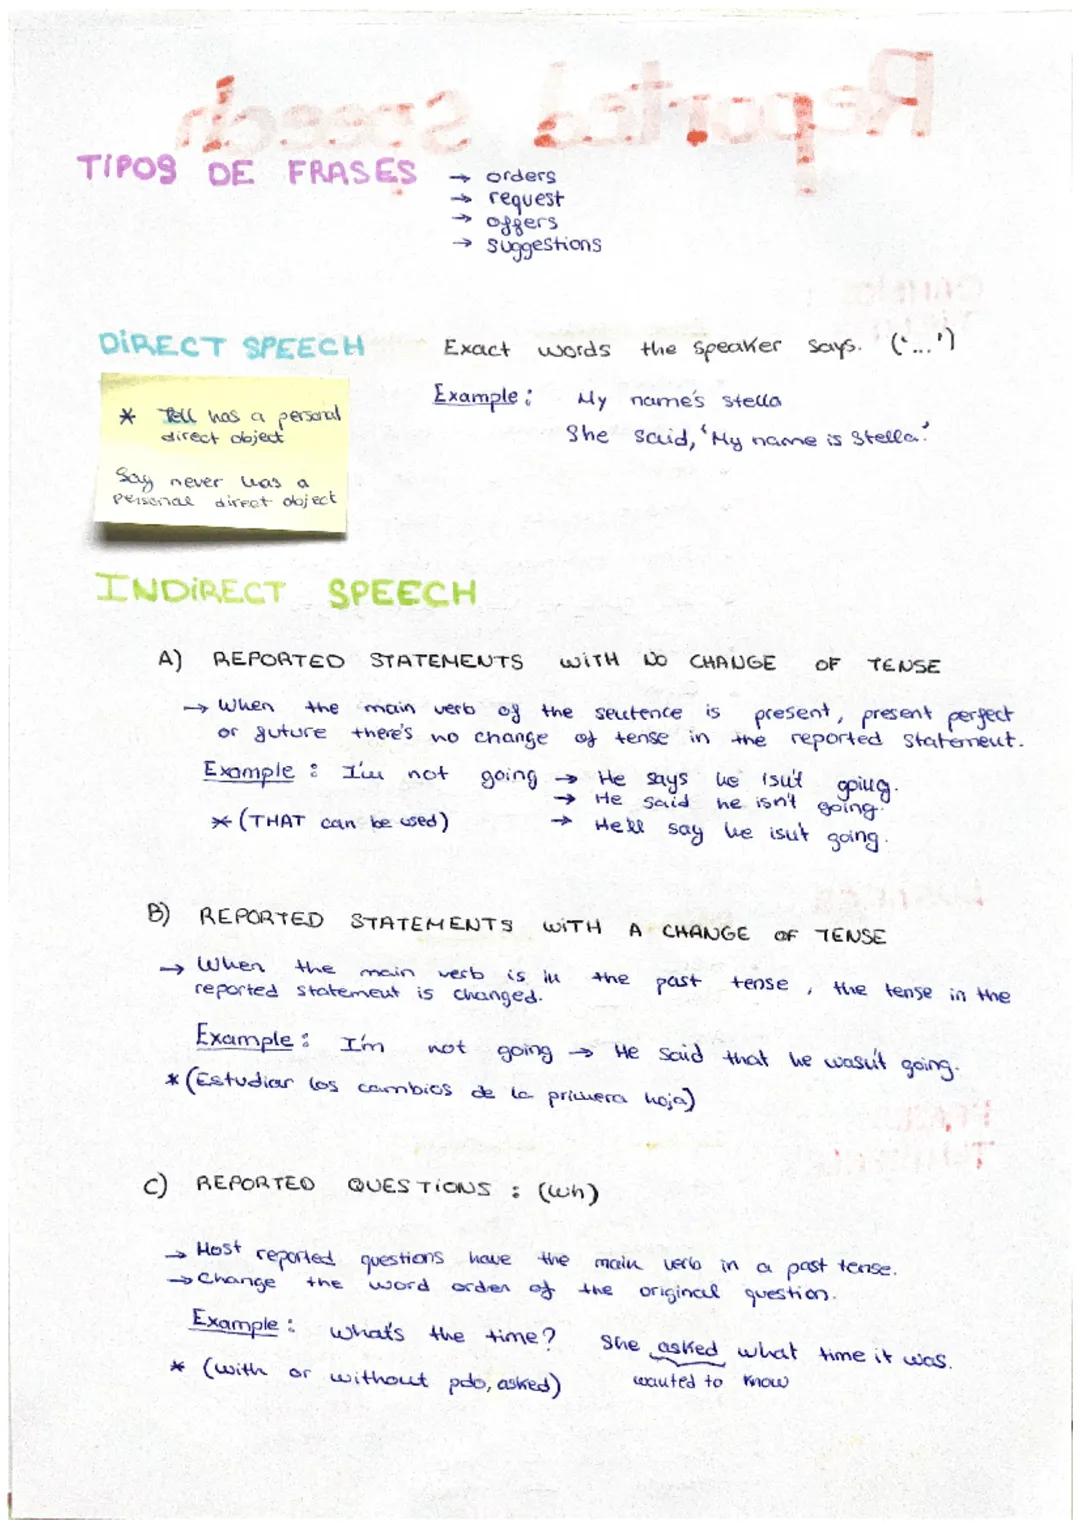 TIPOS DE FRASES → orders
→ request
→ offers
→ suggestions
DIRECT SPEECH
Exact words the speaker says. ('...')
Example: My name's stella
She said, 'My name is Stella.'
* Tell has a personal
direct object
Say never has a
personal direct object
INDIRECT SPEECH
A) REPORTED STATEMENTS WITH NO CHANGE OF TENSE
→ When the main verb of the sentence is present, present perfect
or future there's no change of tense in the reported statement.
Example: I'm not going → He says he isn't going.
→ He said he isn't going.
→ He'll say he isn't going.
* (THAT can be used)
B) REPORTED STATEMENTS WITH A CHANGE OF TENSE
→ When the main verb is in the past tense, the tense in the
reported statement is changed.
Example: I'm not going → He said that he wasn't going.
* (Estudiar los cambios de la primera hoja)
C) REPORTED QUESTIONS: (Wh)
→ Most reported questions have the main verb in a past tense.
→ Change the word order of the original question.
Example: What's the time? She asked what time it was.
wanted to know
* (with or without pdo, asked)